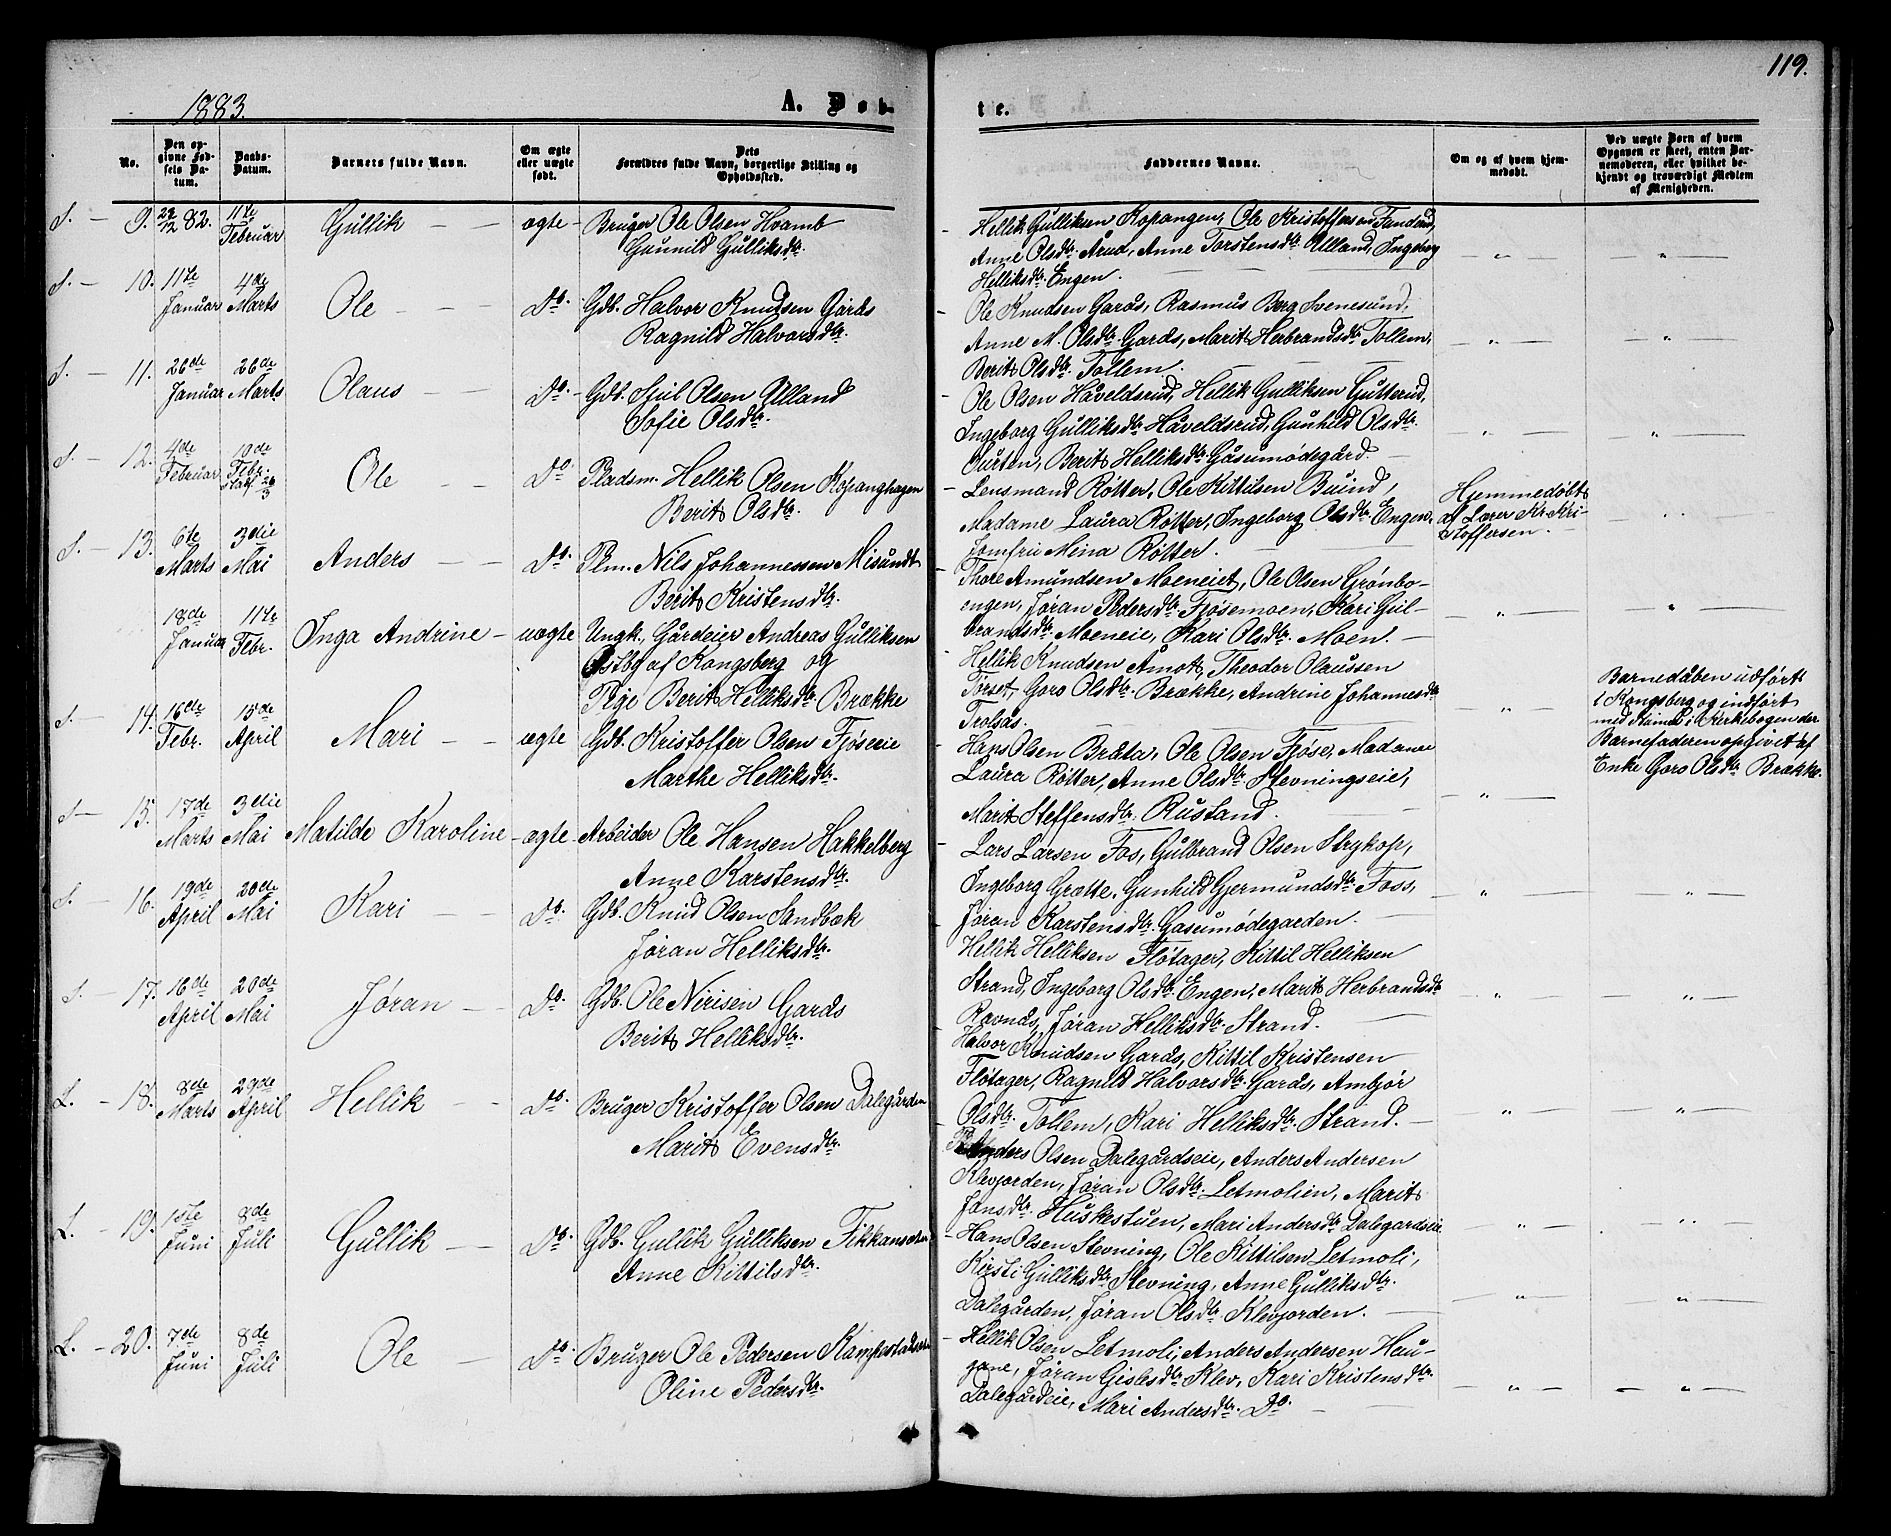 119.
1883.
A. Døb-
te.
No.
Den op-
givne Fød-
sels Da-
tum.
Daabs-
Datum.
Barnets fulde Navn.
Om ægte
eller uægte
født.
Dets
Forældres fulde Navn, borgerlige Stilling og
Opholdssted.
Faddernes Navne.
Om og af hvem hjem-
medøbt.
Ved uægte Børn af hvem
Opgaven er skeet, enten Bar-
nemoderen, eller hvilket be-
kjendt og troværdigt Medlem
af Menigheden.
S. — 9. 29/12 82. 11te Februar Gullik — — ægte - Bruger Ole Olsen Hvamb
Gunnild Gulliksdtr.
- Hellik Gulliksen Kopangen, Ole Kristoffersen
Anne Olsdtr. Årud, Anne Torstensdtr. Ulland, Ingeborg
Helliksdtr. Engen.
S. — 10. 11te Januar 4de Marts Ole — — Do. Gdb. Halvor Knudsen Gards
Ragnild Halvorsdtr.
- Ole Knudsen Gards, Rasmus Berg Svenesund,
Anne M. Olsdtr. Gards, Marit Herbrandsdtr. Tollem,
Berit Olsdtr. Tollem.
S. — 11. 26de Januar 26de Marts Olaus — — Do. Gdb. Olsen Ulland
Sofie Olsdtr.
- Ole Olsen Håveldsrud, Hellik Gulliksen Gutterud,
Ingeborg Gulliksdtr. Håveldsrud, Gunhild Olsdtr.
Aurten, Berit Helliksdtr. Gåsumødegård.
S. — 12. 4de Februar 10de Febr. Ole — — Do Pladsm. Hellik Olsen Kopanghagen
Berit Olsdtr.
- Lensmand Røtter, Ole Kittilsen Buind,
Madame Laura Røtter, Ingeborg Olsdtr. Engen,
Jomfru Mina Røtter.
Hjemmedøbt
af Lærer Kr. Kri-
stoffersen.
S. — 13. 6te Marts 3die Mai Anders — — Do. Plm. Nils Johannessen Misundt
Berit Kristensdtr.
- Thore Amundsen Moeneiet, Ole Olsen Grønbo-
engen, Jøran Pedersdtr. Fjøsemoen, Kari Gul-
brandsdtr. Moeneie, Kari Olsdtr. Moen. —
18de Januar 11te Febr. Inga Andrine — uægte Ungk., Gårdeier Andreas Gulliksen
Østby af Kongsberg og
Pige Berit Helliksdtr. Brække
Hellik Knudsen Åmot, Theodor Olaussen
Torset, Goro Olsdtr. Brække, Andrine Johannesdtr.
Trolsås.
Barnedåben udført
i Kongsberg og indført
med Numer i Kirkebogen der
Barnefaderen opgivet af
Enke Goro Olsdtr. Brække.
S. — 14. 16de Febr. 15de April Mari — — ægte Gdb. Kristoffer Olsen Fjøseie
Marthe Helliksdtr.
- Hans Olsen Bråta, Ole Olsen Fjøse, Madame
Laura Røtter, Anne Olsdtr. Stevningseie,
Marit Steffensdtr. Rustand.
S — 15. 17de Marts 3die Mai Matilde Karoline - ægte Arbeider Ole Hansen Hakkelberg
Anne Karstensdtr.
- Lars Larsen Fos, Gulbrand Olsen Strykop,
Ingeborg Grøtte, Gunhild Gjermundsdtr. Foss,
Jøran Karstensdtr. Gasumødegarden. —
S. — 16. 19de April 20de Mai Kari — — Do. Gdb. Knud Olsen Sandbæk
Jøran Helliksdtr.
Hellik Helliksen Fløtager, Kittil Helliksen
Strand, Ingeborg Olsdtr. Engen, Marit Herbrandsdtr
Ravnås, Jøran Helliksdtr. Strand.
S. — 17. 16de April 20de Mai Jøran — — Do. Gdb. Ole Nirisen Gards
Berit Helliksdtr.
Halvor Knudsen Gards, Kittil Kristensen
Fløtager, Ragnild Halvorsdtr. Gards, Ambjør
Olsdtr. Tollem, Kari Helliksdtr. Strand. —
L. — 18. 8de Marts 29de April Hellik — — Do. Bruger Kristoffer Olsen Dalegården
Marit Evensdtr.
Anders Olsen Dalegårdseie, Anders Andersen
Klevjorden, Jøran Olsdtr. Letmolien, Marit
Jonsdtr. Huskestuen, Mari Andersdtr. Dalegardseie
L. — 19. 1ste Juni 8de Juli Gullik — — Do. Gdb. Gullik Gulliksen
Anne Kittilsdtr.
- Hans Olsen Stevning, Ole Kittilsen Letmoli,
Kirsti Gulliksdtr. Stevning, Anne Gulliksdtr.
Dalegården, Jøran Olsdtr. Klevjorden. —
L. — 20. 7de Juni 8de Juli Ole — Do. Bruger Ole Pedersen
Oline Pedersdtr.
- Hellik Olsen Letmoli, Anders Andersen Hau-
gane, Jøran Gislesdtr. Klev, Kari Kristensdtr.
Dalegårdeie, Mari Andersdtr. Do. —